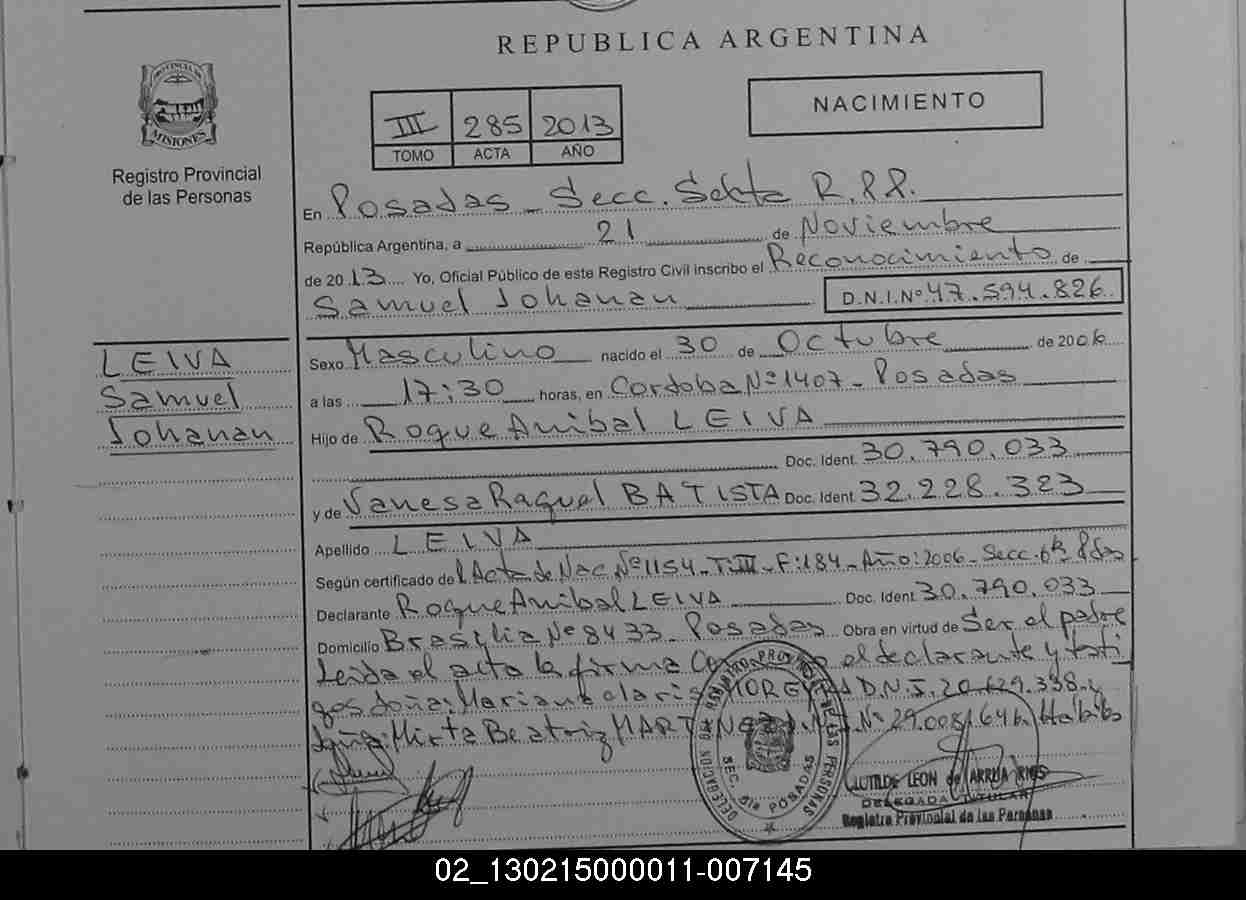 REPUBLICA ARGENTINA
PROVINCIA DE
MISIONES
Registro Provincial
de las Personas
III 285 2013
TOMO ACTA AÑO
NACIMIENTO
En Posadas - Secc. Sexta R.P.P.
República Argentina, a 21 de Noviembre
de 2013 Yo, Oficial Público de este Registro Civil inscribo el Reconocimiento de
Samuel Johanan D.N.I.Nº 47.594.826
LEIVA
Samuel
Johanan
Sexo Masculino nacido el 30 de Octubre de 2006
a las 17:30 horas, en Cordoba Nº 1407 - Posadas
Hijo de Roque Anibal LEIVA
Doc. Ident. 30.790.033
y de Vanesa Raquel BATISTA Doc. Ident. 32.228.323
Apellido LEIVA
Según certificado del Acta de Nac. Nº 1154 - T: III - F: 184 - Año: 2006 - Secc. 6ta Pdas
Declarante Roque Anibal LEIVA Doc. Ident. 30.790.033
Domicilio Brasilia Nº 8433 - Posadas Obra en virtud de Ser el padre
Leida el acta la firma el declarante y testi
gos doña: MOREYRA D.N.I. 20.629.338 y
doña: Mirta Beatriz MARTINEZ D.N.I. Nº 29.008.646
DELEGACION DEL REGISTRO PROVINCIAL DE LAS PERSONAS
SEC. 6ta POSADAS
CLOTILDE LEON de ARRUA RIOS
DELEGADA TITULAR
Registro Provincial de las Personas
02_130215000011-007145